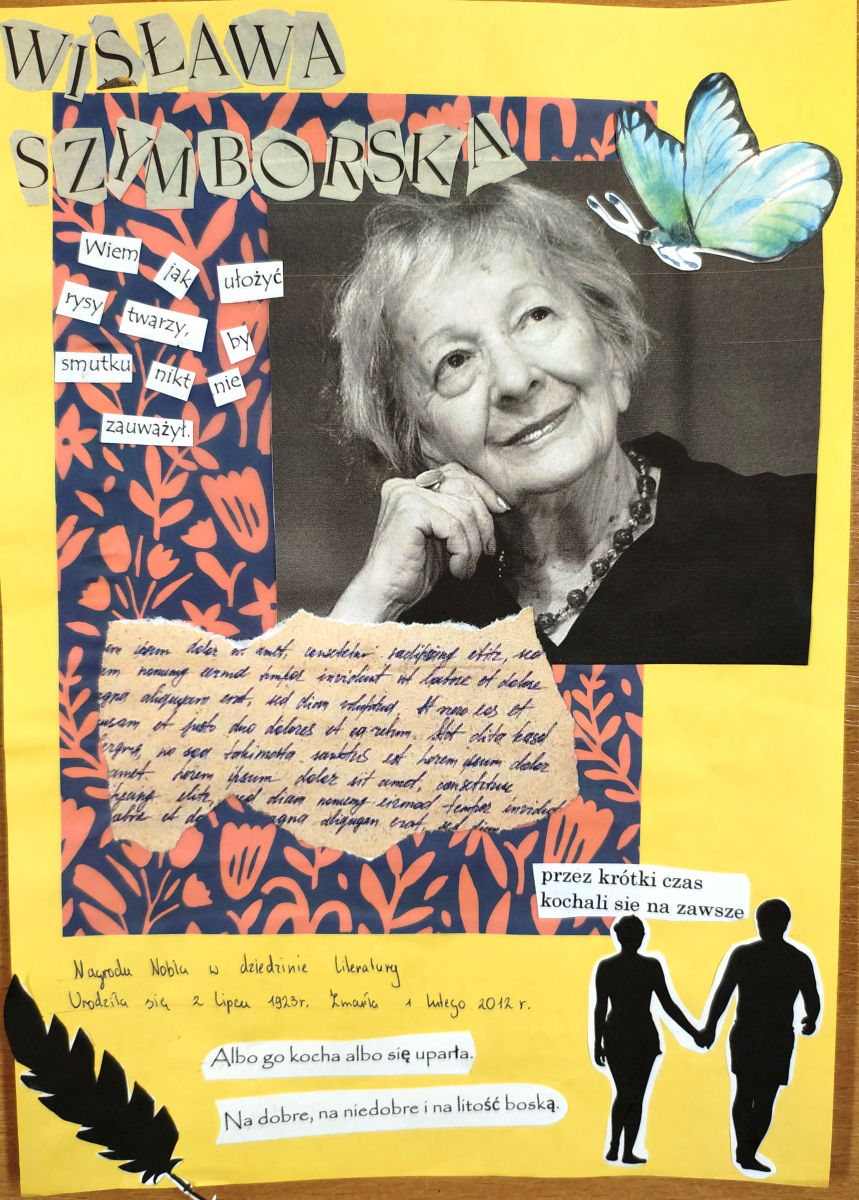 WISŁAWA
SZYMBORSKA
Wiem jak ułożyć
rysy twarzy, by
smutku nikt nie
zauważył.
em ipsum dolor sit amet, consetetur sadipscing elitr, sed
am nonumy eirmod tempor invidunt ut labore et dolore
agna aliquyam erat, sed diam voluptua. At vero eos et
usam et justo duo dolores et ea rebum. Stet clita kasd
ergren, no sea takimata sanctus est Lorem ipsum dolor
amet. Lorem ipsum dolor sit amet, consetetur
elitr, sed diam nonumy eirmod tempor invidunt
abore et do agna aliquyam erat, sed diam
przez krótki czas
kochali się na zawsze
Nagroda Nobla w dziedzinie Literatury
Urodziła się 2 lipca 1923r. Zmarła 1 lutego 2012 r.
Albo go kocha albo się uparła.
Na dobre, na niedobre i na litość boską.